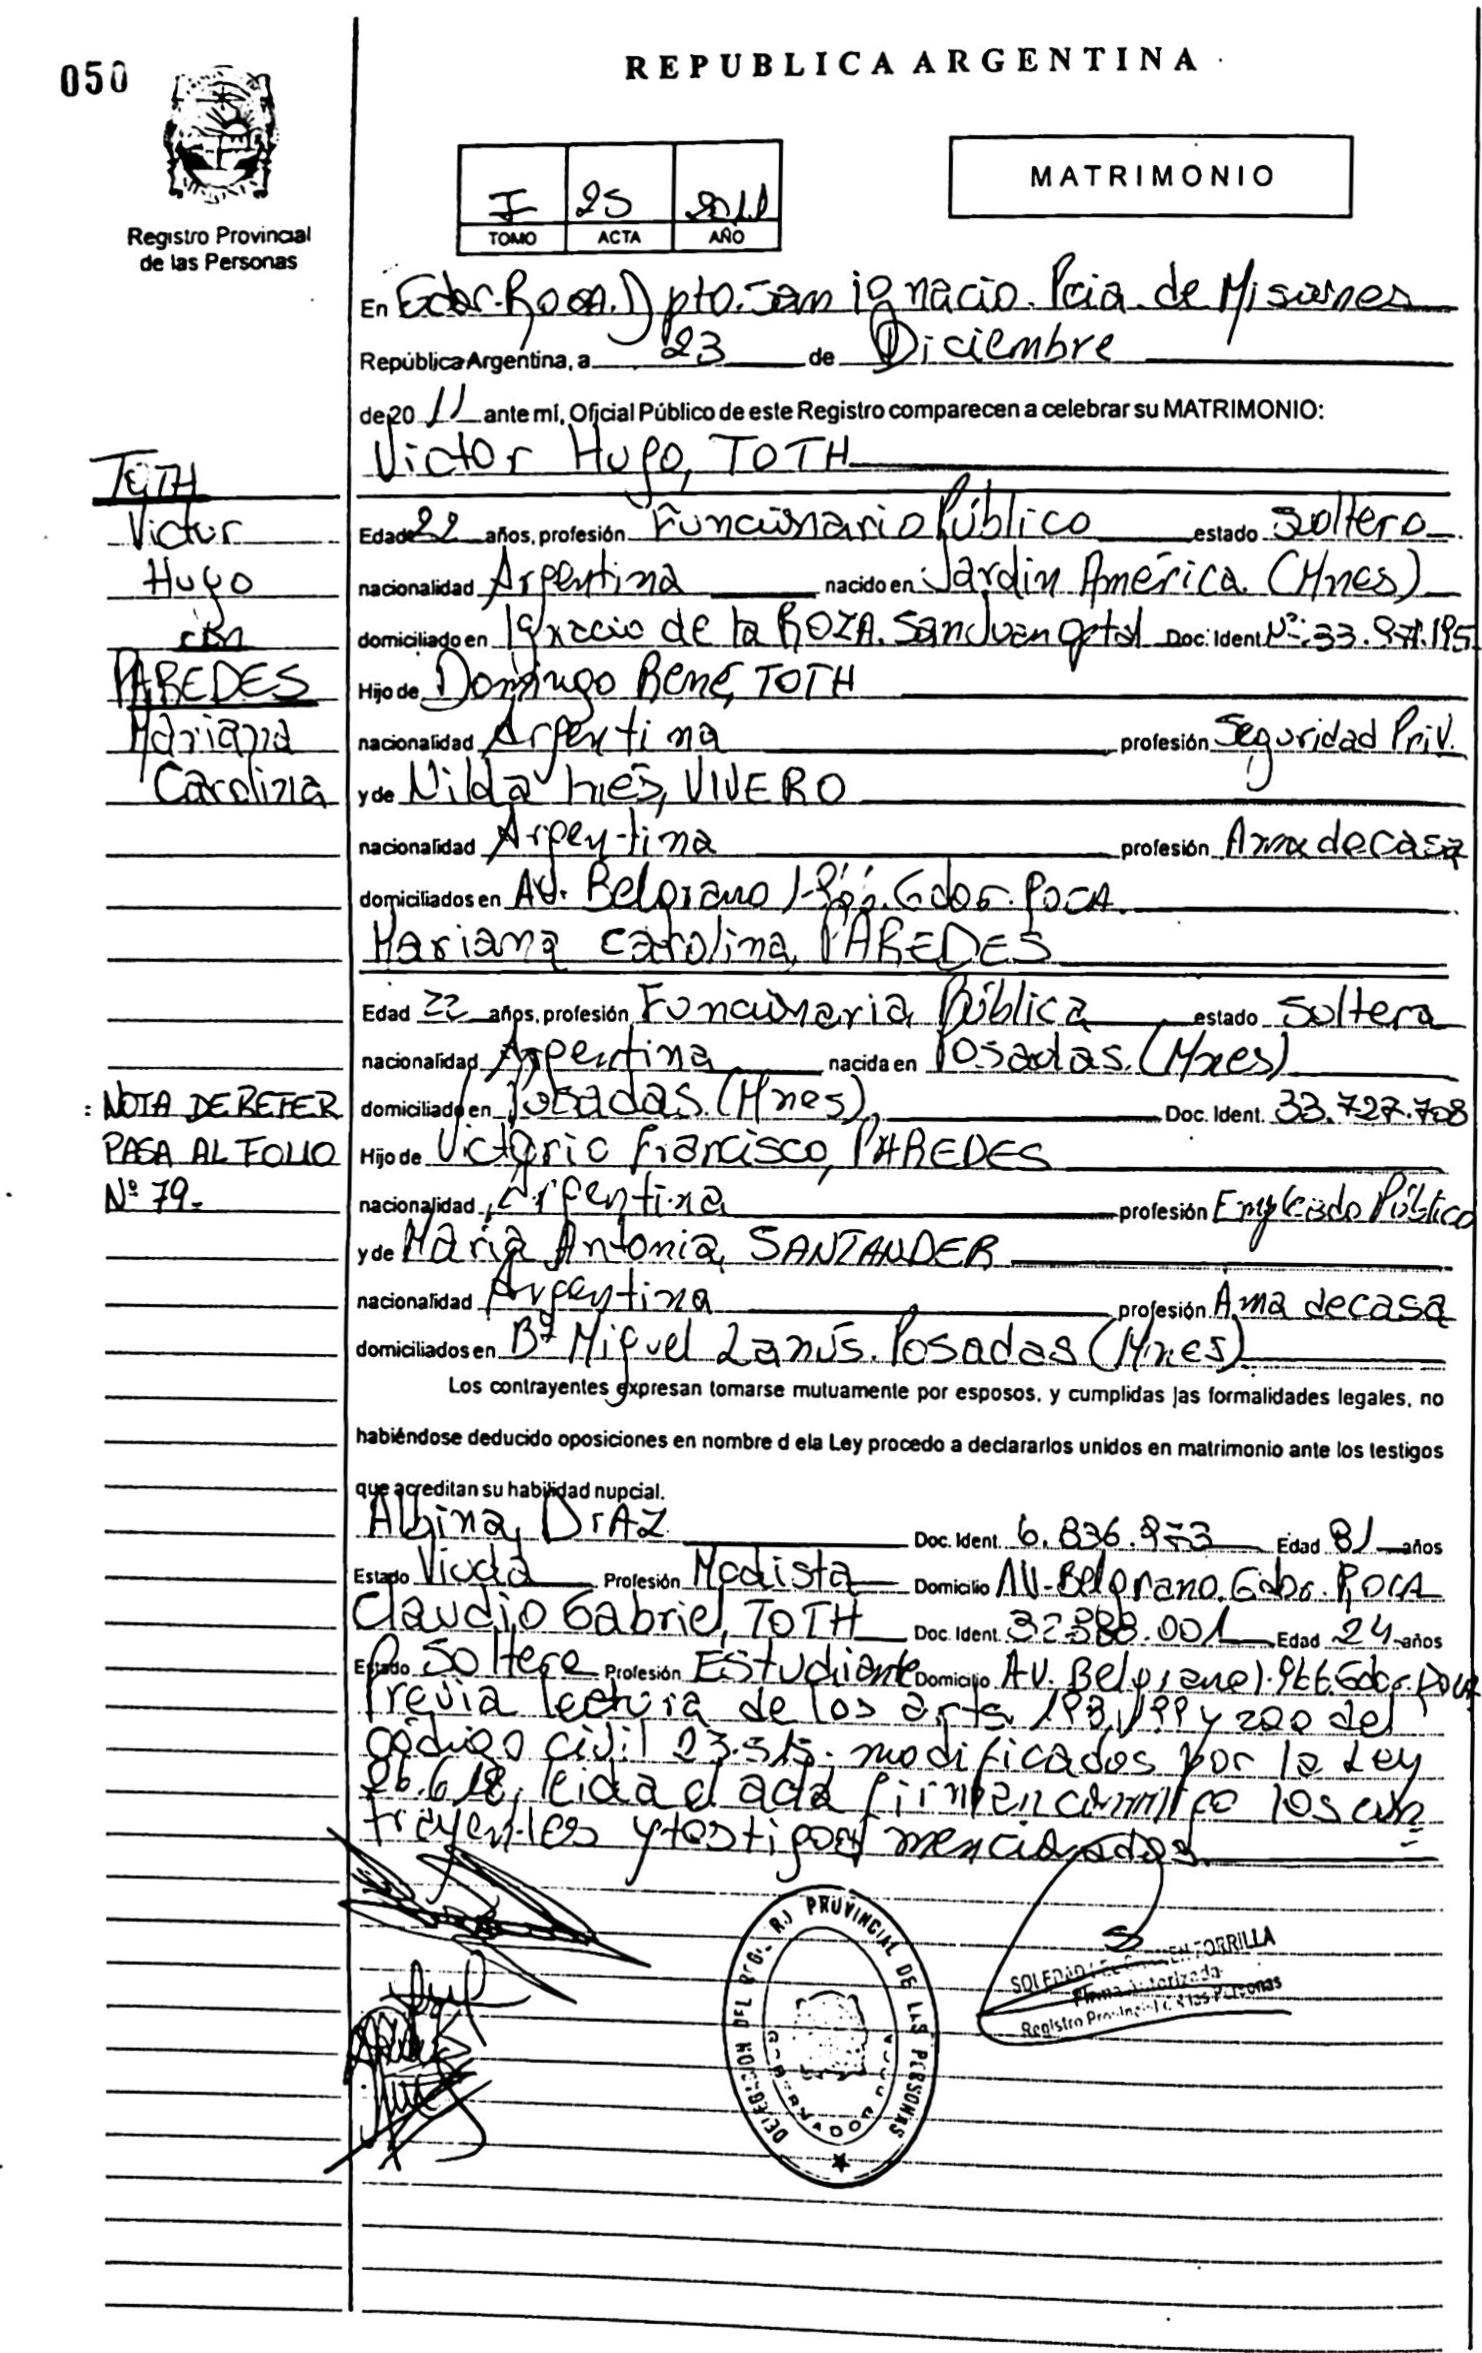 050
REPUBLICA ARGENTINA
MATRIMONIO
I 25 2011
TOMO ACTA AÑO
Registro Provincial
de las Personas
En Gdor. Roca. Dpto. San ignacio. Pcia de Misiones
República Argentina, a 23 de Diciembre
de 20 11 ante mí, Oficial Público de este Registro comparecen a celebrar su MATRIMONIO:
Victor Hugo, TOTH
TOTH
Victor
Hugo
con
PAREDES
Mariana
Carolina
Edad 22 años, profesión Funcionario Público estado soltero
nacionalidad Argentina nacido en Jardin América. (Mnes)
domiciliado en Ignacio de la ROZA. San Juan Doc. Ident. Nº: 33.
Hijo de Domingo René, TOTH
nacionalidad Argentina profesión Seguridad Priv.
y de Nilda Inés, VIVERO
nacionalidad Argentina profesión Ama de casa
domiciliados en AV. Belgrano Gdor. ROCA.
Mariana Carolina, PAREDES
Edad 22 años, profesión Funcionaria Pública estado Soltera
nacionalidad Argentina nacida en Posadas. (Mnes)
domiciliado en Posadas. (Mnes), Doc. Ident. 33.727.708
: NOTA DE REFER
PASA AL FOLIO
Nº 79.-
Hijo de Victorio Francisco, PAREDES
nacionalidad Argentina profesión Empleado Público
y de Maria Antonia, SANTANDER
nacionalidad Argentina profesión Ama de casa
domiciliados en Bº Miguel Lanús. Posadas (Mnes)
Los contrayentes expresan tomarse mutuamente por esposos, y cumplidas las formalidades legales, no
habiéndose deducido oposiciones en nombre d ela Ley procedo a declararlos unidos en matrimonio ante los testigos
que acreditan su habilidad nupcial.
Albina, DIAZ Doc. Ident. 6.836.973 Edad 81 años
Estado Viuda Profesión Modista Domicilio AV. Belgrano. Gdor. ROCA
Claudio Gabriel, TOTH Doc. Ident. 32.388.001 Edad 24 años
Estado Soltero Profesión Estudiante Domicilio AV. Belgrano Gdor. ROCA
Previa lectura de los arts. 198, 199 y 200 del
código civil 23.515. modificados por la Ley
26.618, leida el acta firman conmigo los con
trayentes y testigos mencionados
DELEGACION DEL REG. PROVINCIAL DE LAS PERSONAS
GOBERNADOR ROCA
SOLEDAD TORRILLA
Firma Autorizada
Registro Provincial de las Personas